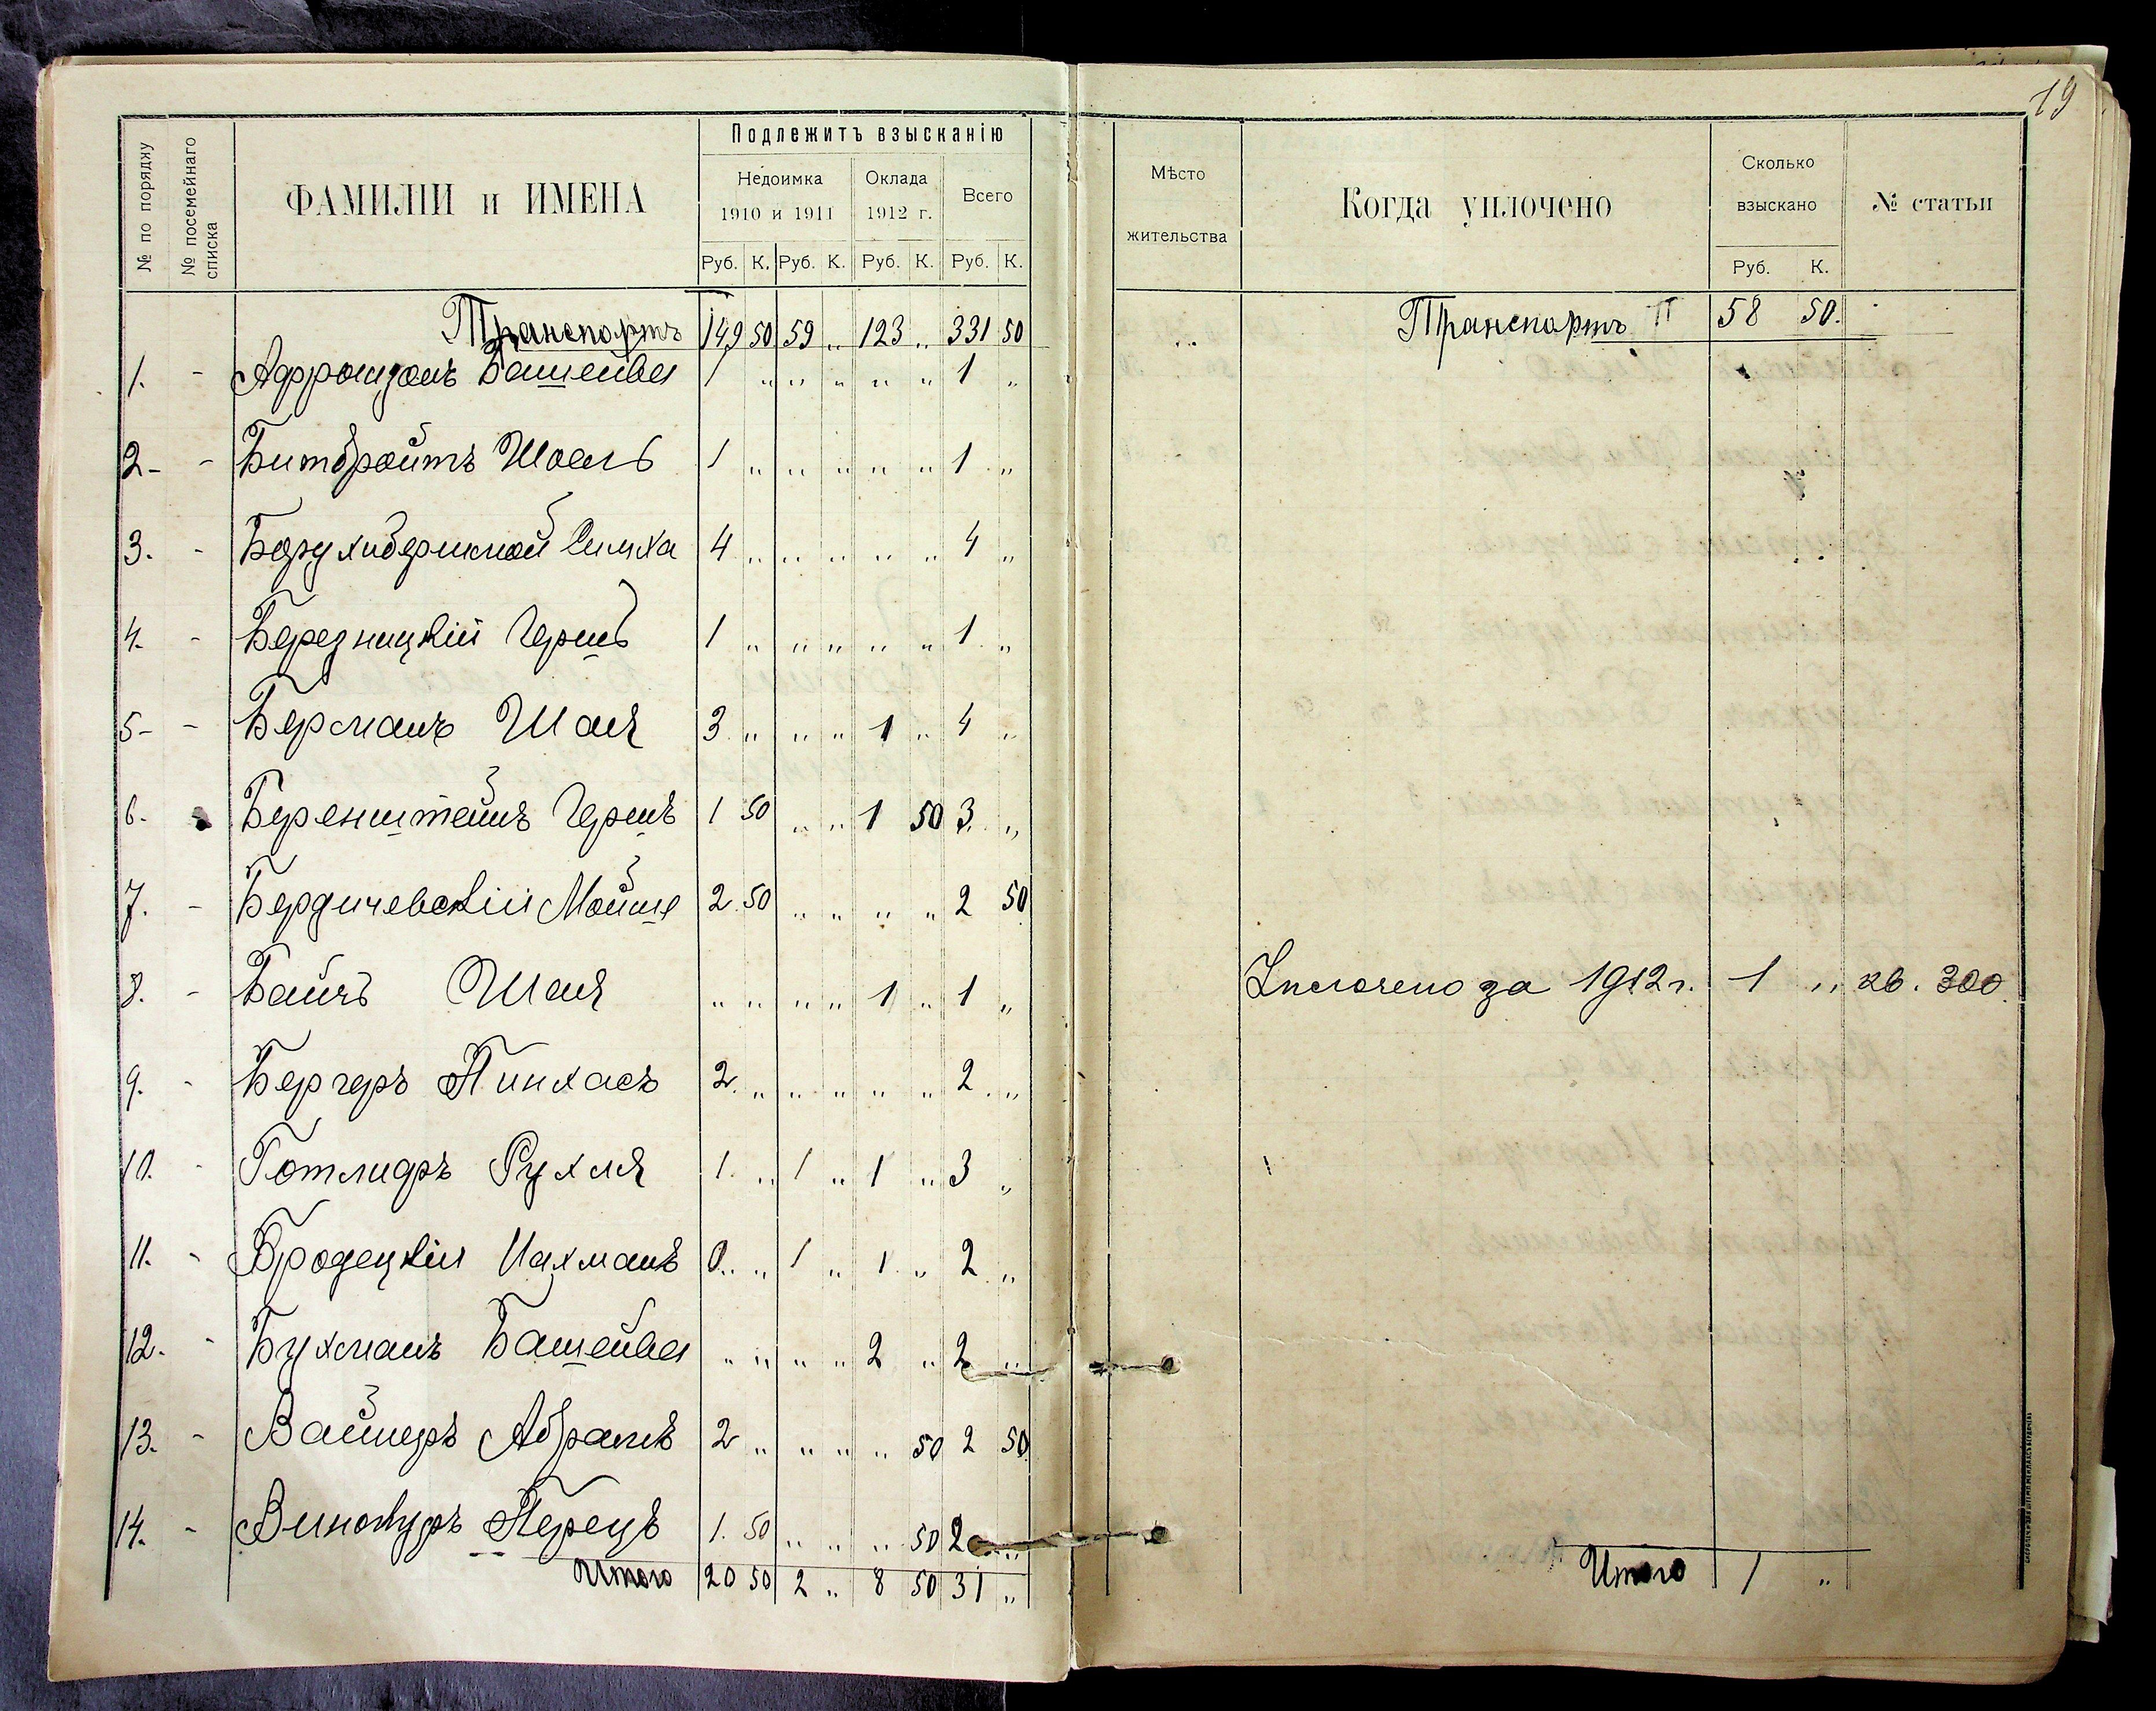 19
№ по порядку
№ посемейнаго списка
ФАМИЛІИ и ИМЕНА
Подлежитъ взысканію
Недоимка 1910 и 1911
Оклада 1912 г.
Всего
Руб. К. Руб. К. Руб. К. Руб. К.
Транспортъ 149 50 59 „ 123 „ 331 50
1. - Башейва 1 „ „ „ „ „ 1 „
2 - - Битбройтъ Шоель 1 „ „ „ „ „ 1 „
3. - Симха 4 „ „ „ „ „ 4 „
4. - Березницкій Гершъ 1 „ „ „ „ „ 1 „
5 - - Берманъ Шая 3 „ „ „ 1 „ 4 „
6. - Беренштейнъ Гершъ 1 50 „ „ 1 50 3 „
7. - Бердичевскій Мойше 2 50 „ „ „ „ 2 50
8. - Шая „ „ „ „ 1 „ 1 „
9. - Бергеръ Пинхасъ 2 „ „ „ „ „ 2 „
10. - Рухля 1 „ 1 „ 1 „ 3 „
11. - Бродецкій Нахманъ 0 „ 1 „ 1 „ 2 „
12. - Бухманъ Башейва „ „ „ „ 2 „ 2 „
13. - Вайнеръ Абрамъ 2 „ „ „ „ 50 2 50
14. - Винокуръ Перецъ 1 50 „ „ „ 50 2 „
Итого 20 50 2 „ 8 50 31 „
Мѣсто жительства
Когда уплочено
Сколько взыскано
№ статьи
Руб. К.
Транспортъ 58 50
Уплочено за 1912 г. 1 „ кв. 300
Итого 1 „